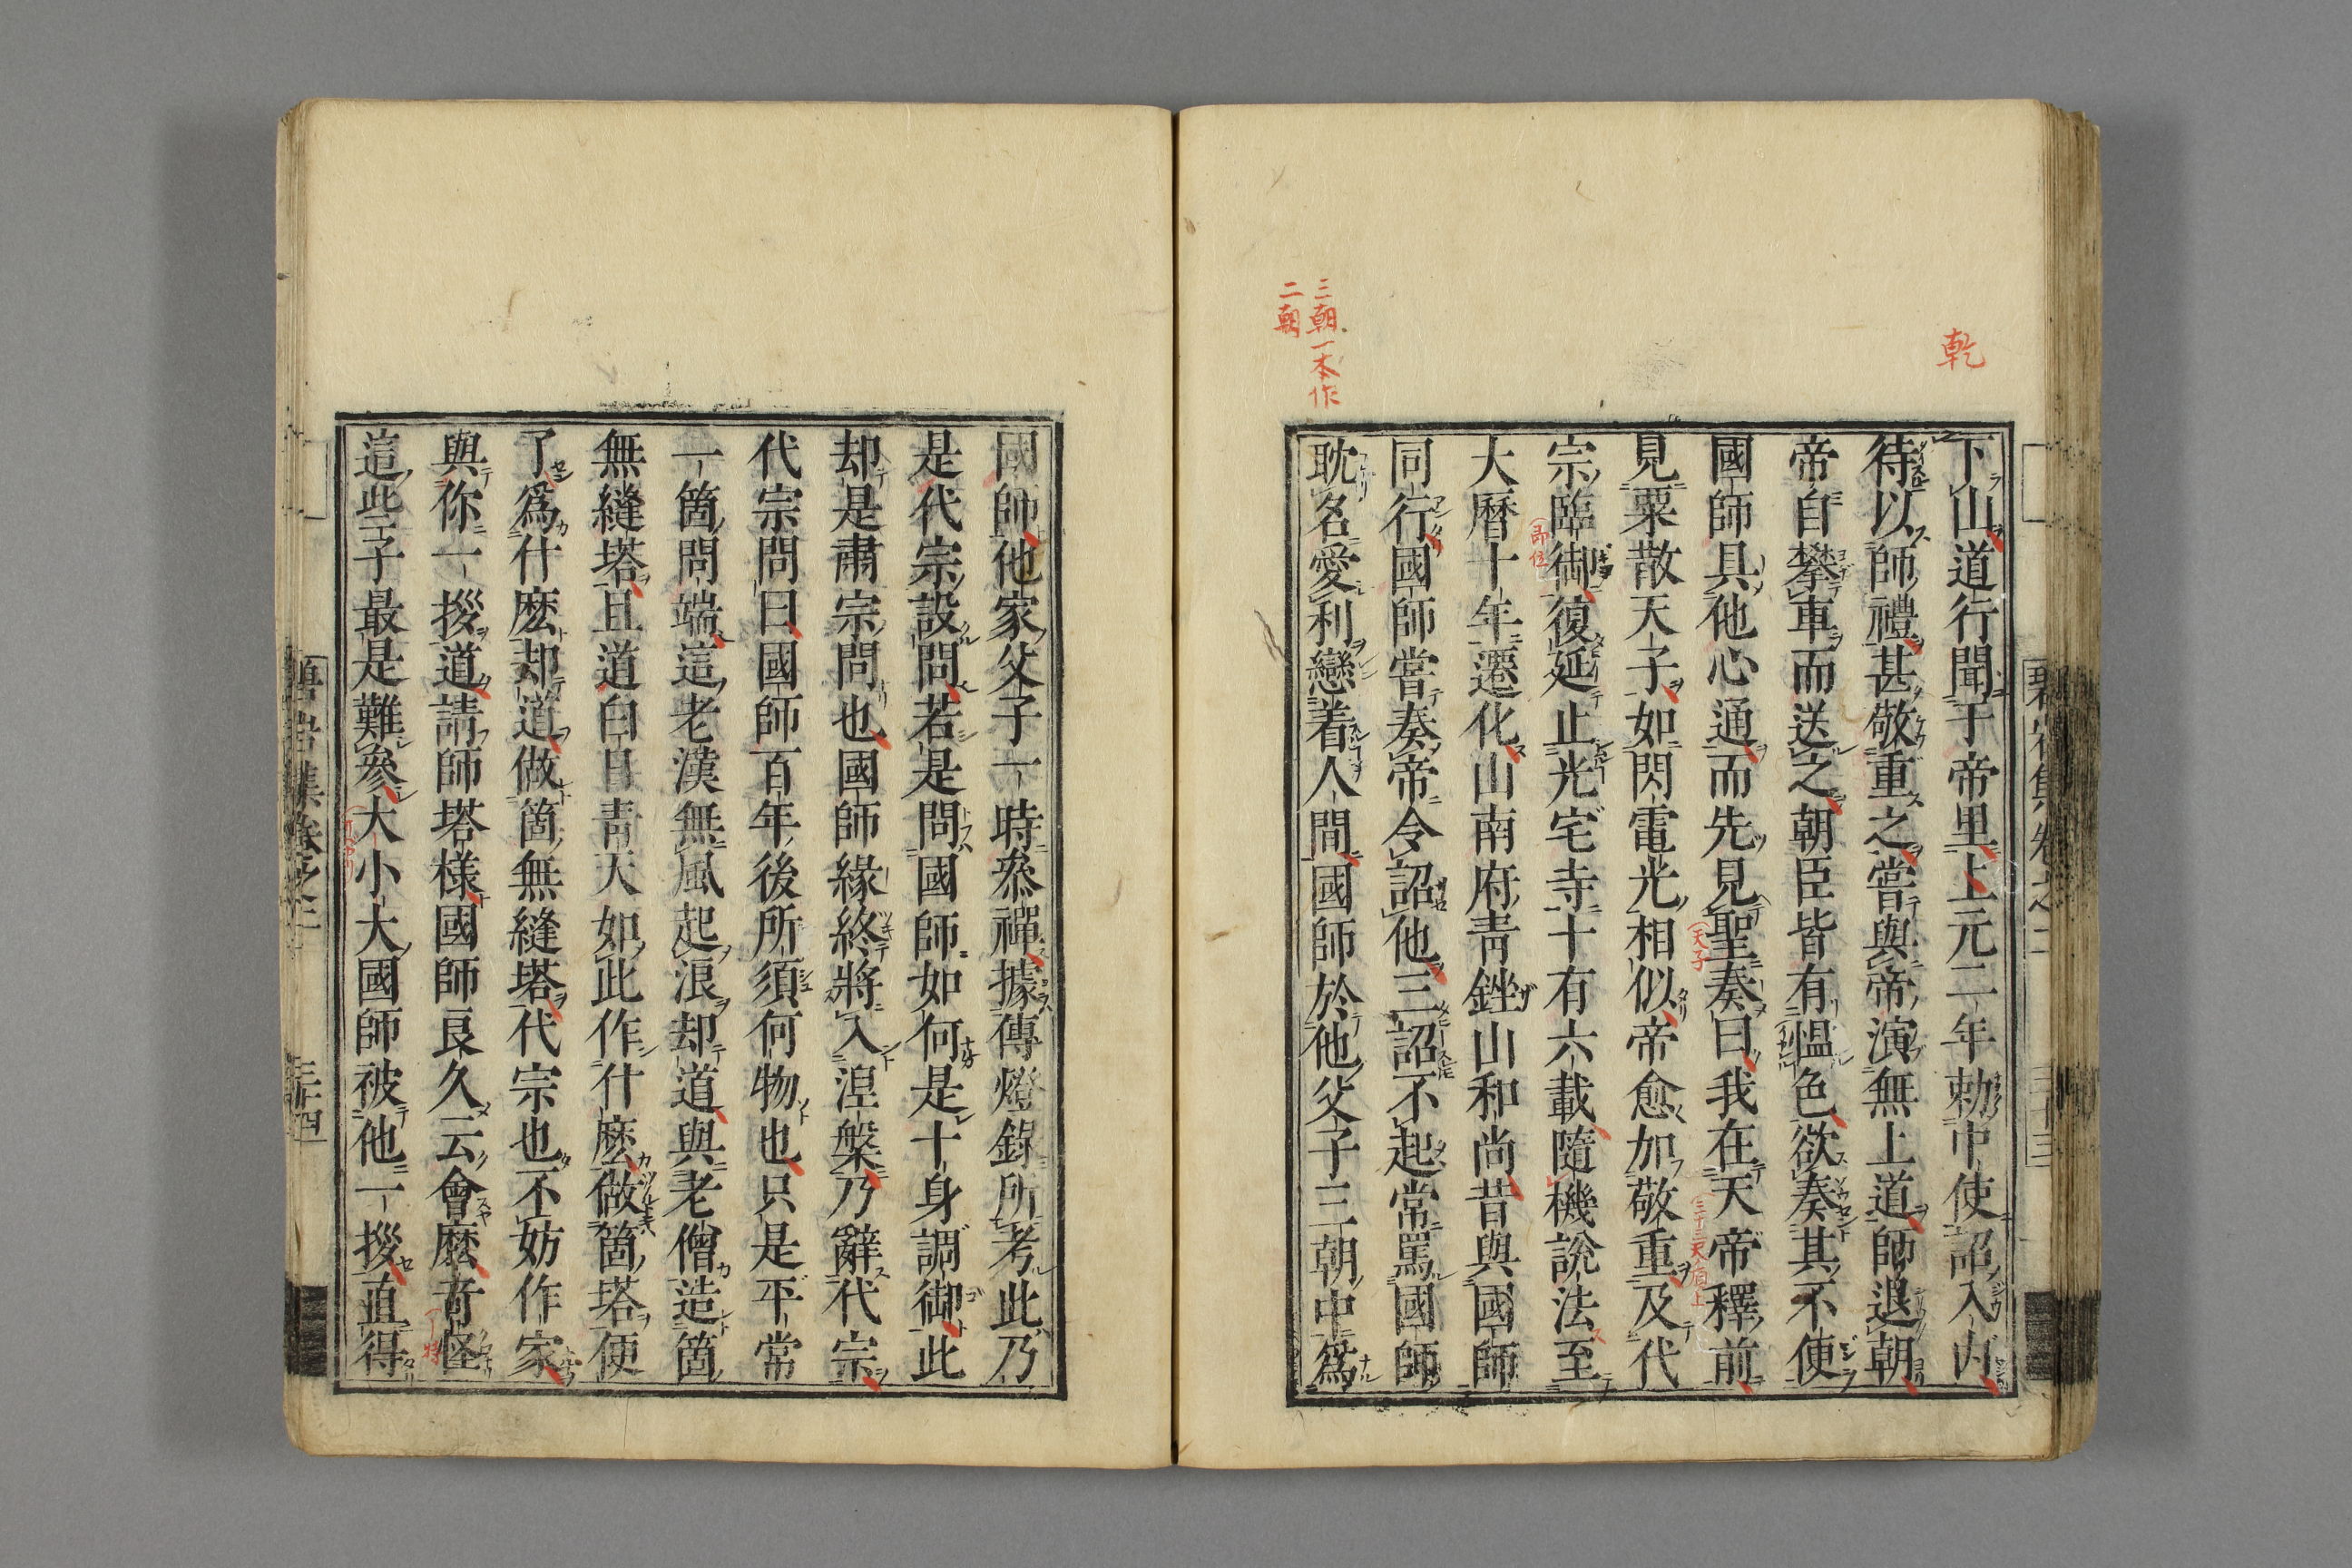 乾
下山道行聞于帝里上元二年勅中使詔入內
待以師禮甚敬重之嘗與帝演無上道師退朝
帝自攀車而送之朝臣皆有慍色欲奏其不便
國師具他心通而先見聖奏曰我在天帝釋前
見粟散天子如閃電光相似帝愈加敬重及代
宗臨御復延止光宅寺十有六載隨機說法至
大曆十年遷化山南府靑銼山和尚昔與國師
同行國師嘗奏帝令詔他三詔不起常罵國師
耽名愛利戀着人間國師於他父子三朝中爲
三朝一本作
二朝
天子
卽位
國師他家父子一時參禪據傳燈錄所考此乃
是代宗設問若是問國師如何是十身調御此
却是肅宗問也國師緣終將入涅槃乃辭代宗
代宗問曰國師百年後所須何物也只是平常
一箇問端這老漢無風起浪却道與老僧造箇
無縫塔且道白日靑天如此作什麼做箇塔便
了爲什麽却道做箇無縫塔代宗也不妨作家
與你一拶道請師塔樣國師良久云會麽奇怪
這些子最是難參大小大國師被他一拶直得
碧岩集卷之二
三十四